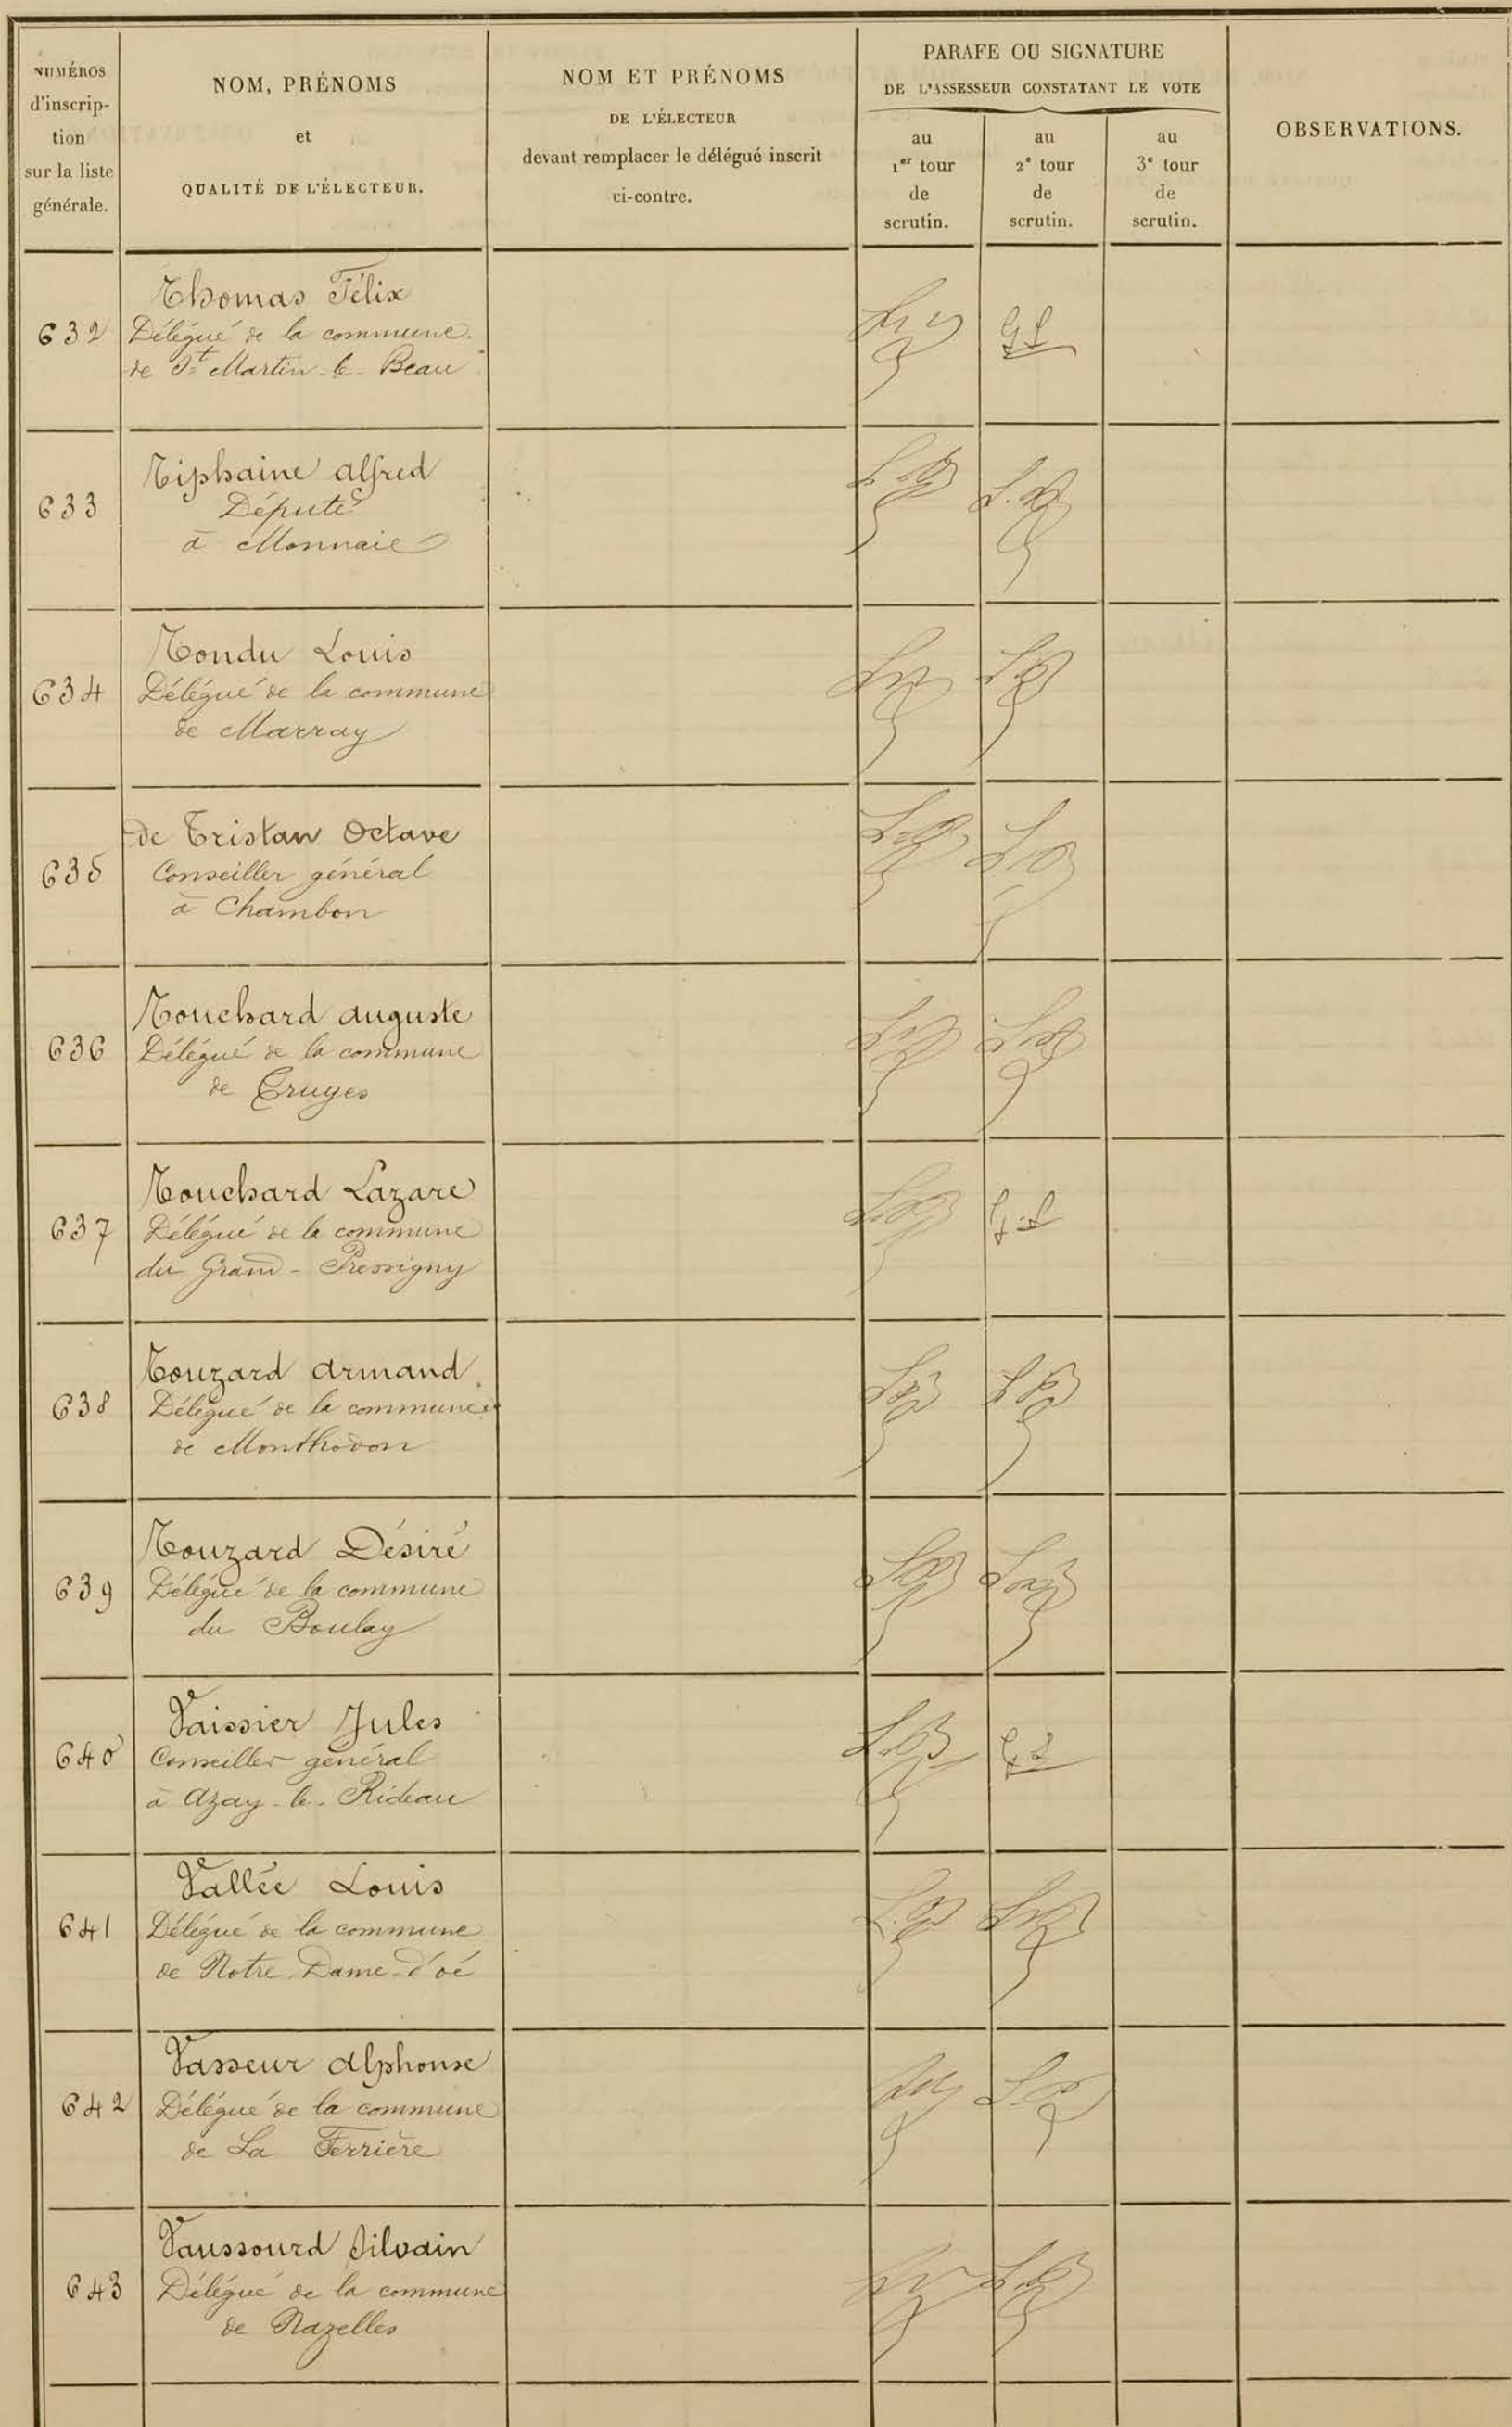 NUMÉROS
d'inscrip-
tion
sur la liste
générale.
NOM, PRÉNOMS
et
QUALITÉ DE L'ÉLECTEUR.
NOM ET PRÉNOMS
DE L'ÉLECTEUR
devant remplacer le délégué inscrit
ci-contre.
PARAFE OU SIGNATURE
DE L'ASSESSEUR CONSTATANT LE VOTE
au
1er tour
de
scrutin.
au
2e tour
de
scrutin.
au
3e tour
de
scrutin.
OBSERVATIONS.
632
Thomas Félix
Délégué de la commune
de St Martin-le-Beau
633
Tiphaine Alfred
Député
à Monnaie
634
Tondu Louis
Délégué de la commune
de Marray
635
de Tristan Octave
Conseiller général
à Chambon
636
Touchard Auguste
Délégué de la commune
de Truyes
637
Touchard Lazare
Délégué de la commune
du Grand-Pressigny
638
Touzard Armand
Délégué de la commune
de Monthodon
639
Touzard Désiré
Délégué de la commune
du Boulay
640
Vaissier Jules
Conseiller général
à Azay-le-Rideau
641
Vallée Louis
Délégué de la commune
de Notre-Dame-d'oé
642
Vasseur Alphonse
Délégué de la commune
de La Ferrière
643
Vaussourd Silvain
Délégué de la commune
de Nazelles